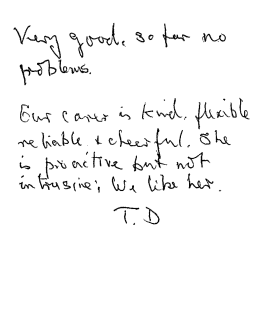 Very good. so far no
problems.
Our carer is kind, flexible
reliable & cheerful. She
is proactive but not
intrusive; We like her.
T.D